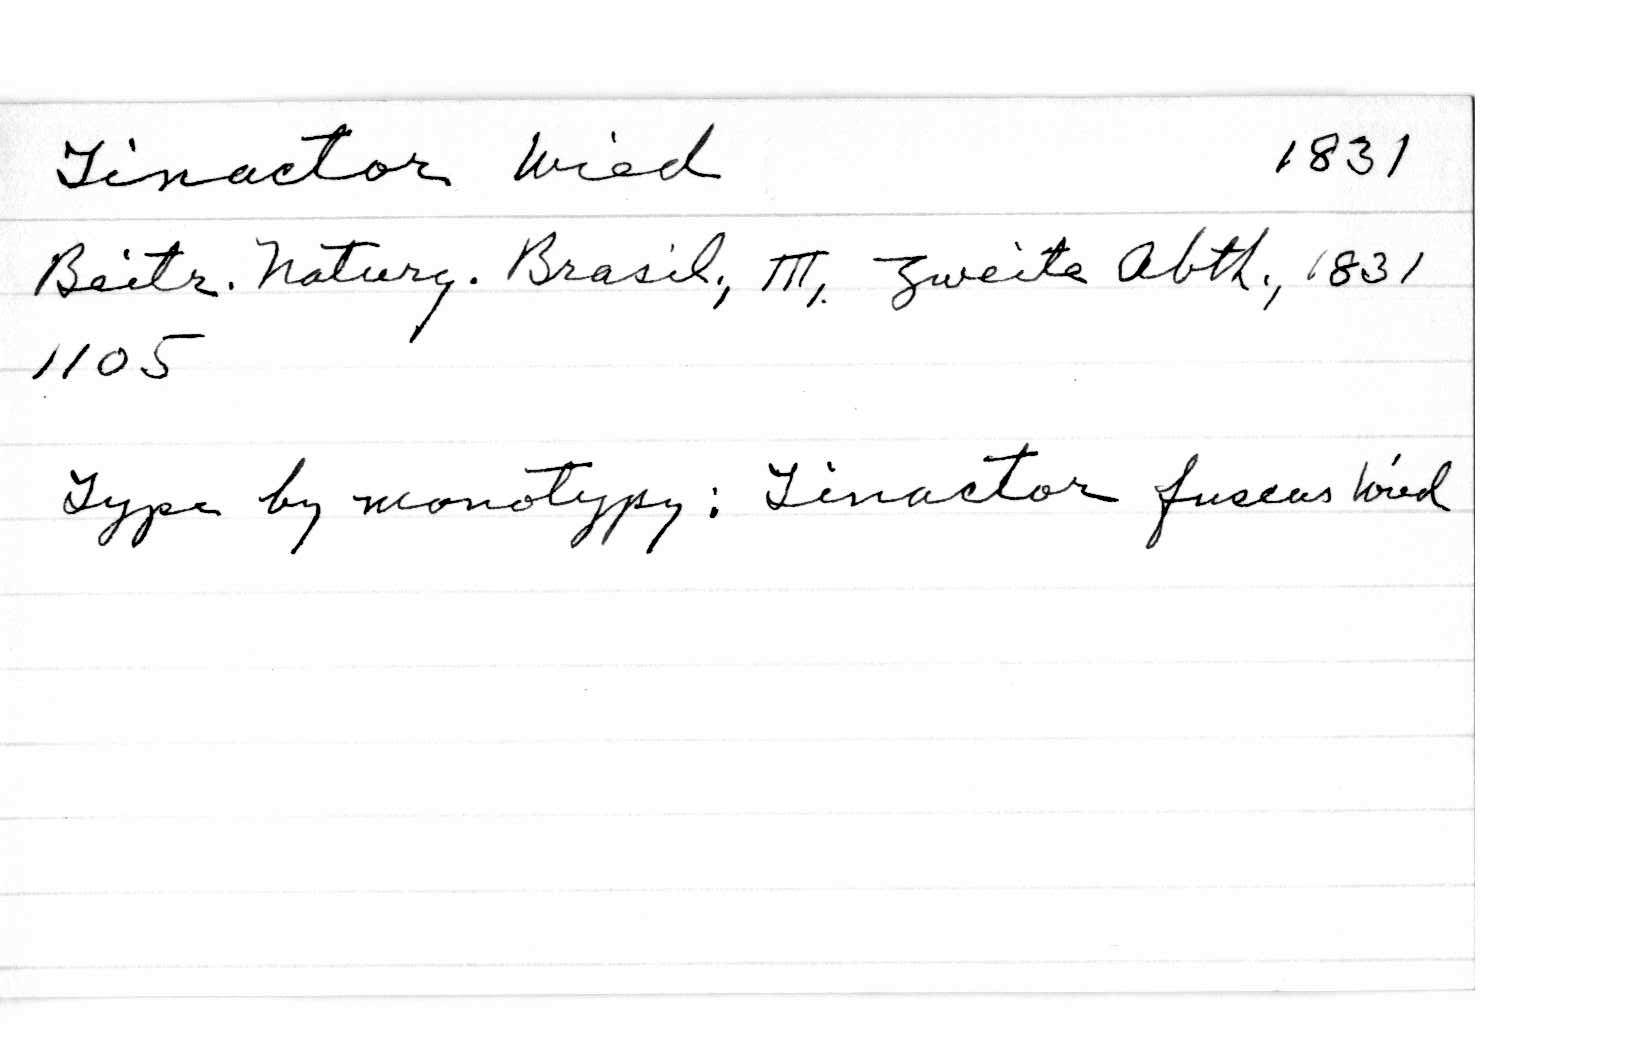 Tinactor Wied 1831
Beitr. Naturg. Brasil., III, Zweite Abth., 1831
1105
Type by monotypy: Tinactor fuscus Wied